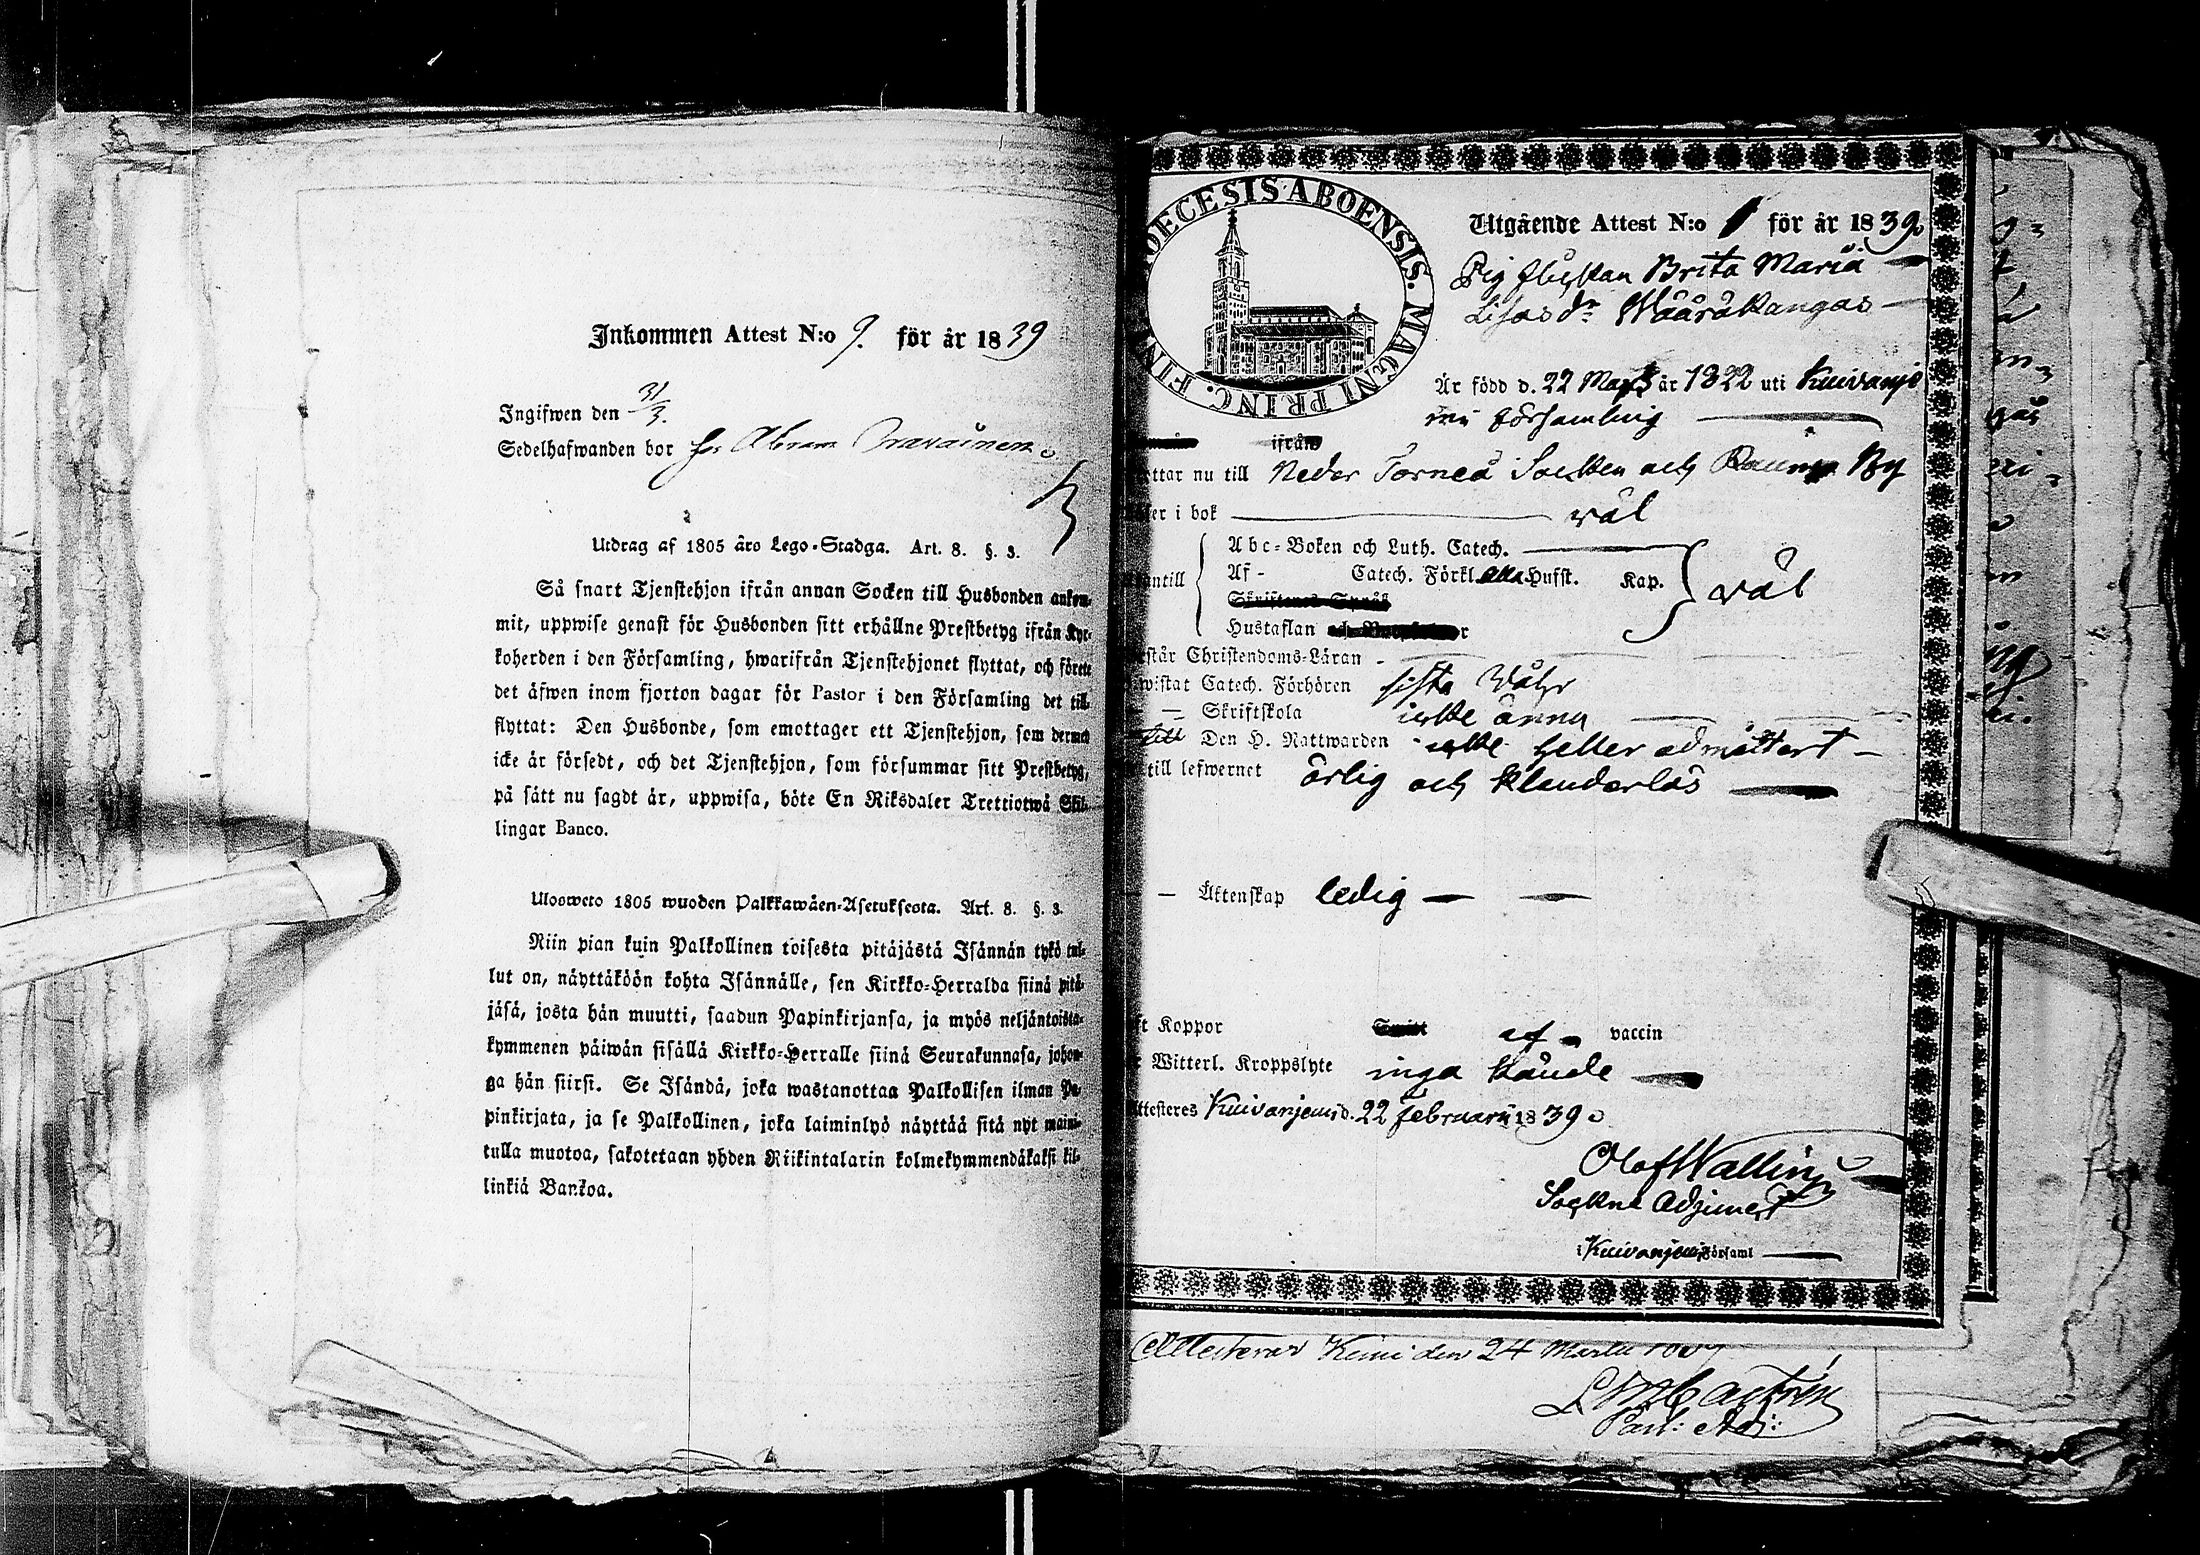 Inkommen Attest N:o 9. för år 1839
Ingifwen den 31/3.
Sedelhafwanden bor hos Abram
Utdrag af 1805 års Lego-Stadga. Art. 8. §. 3.
Så snart Tjenstehjon ifrån annan Socken till Husbonden ankom-
mit, uppwise genast för Husbonden sitt erhållne Prestbetyg ifrån Kyr-
koherden i den Församling, hwarifrån Tjenstehjonet flyttat, och förete
det äfwen inom fjorton dagar för Pastor i den Församling det till-
flyttat: Den Husbonde, som emottager ett Tjenstehjon, som dermed
icke är försedt, och det Tjenstehjon, som försummar sitt Prestbetyg,
på sätt nu sagdt är, uppwisa, böte En Riksdaler Trettiotwå Skil-
lingar Banco.
Ulosweto 1805 wuoden Palkkawäen-Asetuksesta. Art. 8. §. 3.
Niin pian kuin Palkollinen toisesta pitäjästä Isännän tykö tul-
lut on, näyttäköön kohta Isännälle, sen Kirkko-Herralda siinä pitä-
jäsä, josta hän muutti, saadun Papinkirjansa, ja myös neljäntoista-
kymmenen päiwän sisällä Kirkko-Herralle siinä Seurakunnasa, johon-
ga hän siirsi. Se Isändä, joka wastanottaa Palkollisen ilman Pa-
pinkirjata, ja se Palkollinen, joka laiminlyö näyttää sitä nyt maini-
tulla muotoa, sakotetaan yhden Riikintalarin kolmekymmendäkaksi kil-
linkiä Bankoa.
OECESIS ABOENSIS. MAGNI PRINC. FIN
Utgående Attest N:o 1 för år 1839
Pig flickan Brita Maria
Lisas dr Wääräkangas
Är född d. 22 Mars år 1822 uti Kuivanje
mi församling
ifrån
ttar nu till Neder Torneå Socken och Raumo By
er i bok väl
Abc-Boken och Luth. Catech.
antill Af - Catech. Förkl. alla Husst. Kap. väl
Skriftenes Språk
Hustaflan
står Christendoms-Läran
wistat Catech. Förhören sista
Skriftskola icke ännu
till Den H. Nattwarden icke heller admittert
till lefwernet ärlig och klanderlös
Äktenskap ledig
ft Koppor af vaccin
Witterl. Kroppslyte inga kände
ttesteres Kuivanjemi d. 22 februarii 1839
Olof Wallin
Sockne Adjunct
i Kuivanjemi Församl
Attesteras Kemi den 24 Martii 1839
Past: Adj: